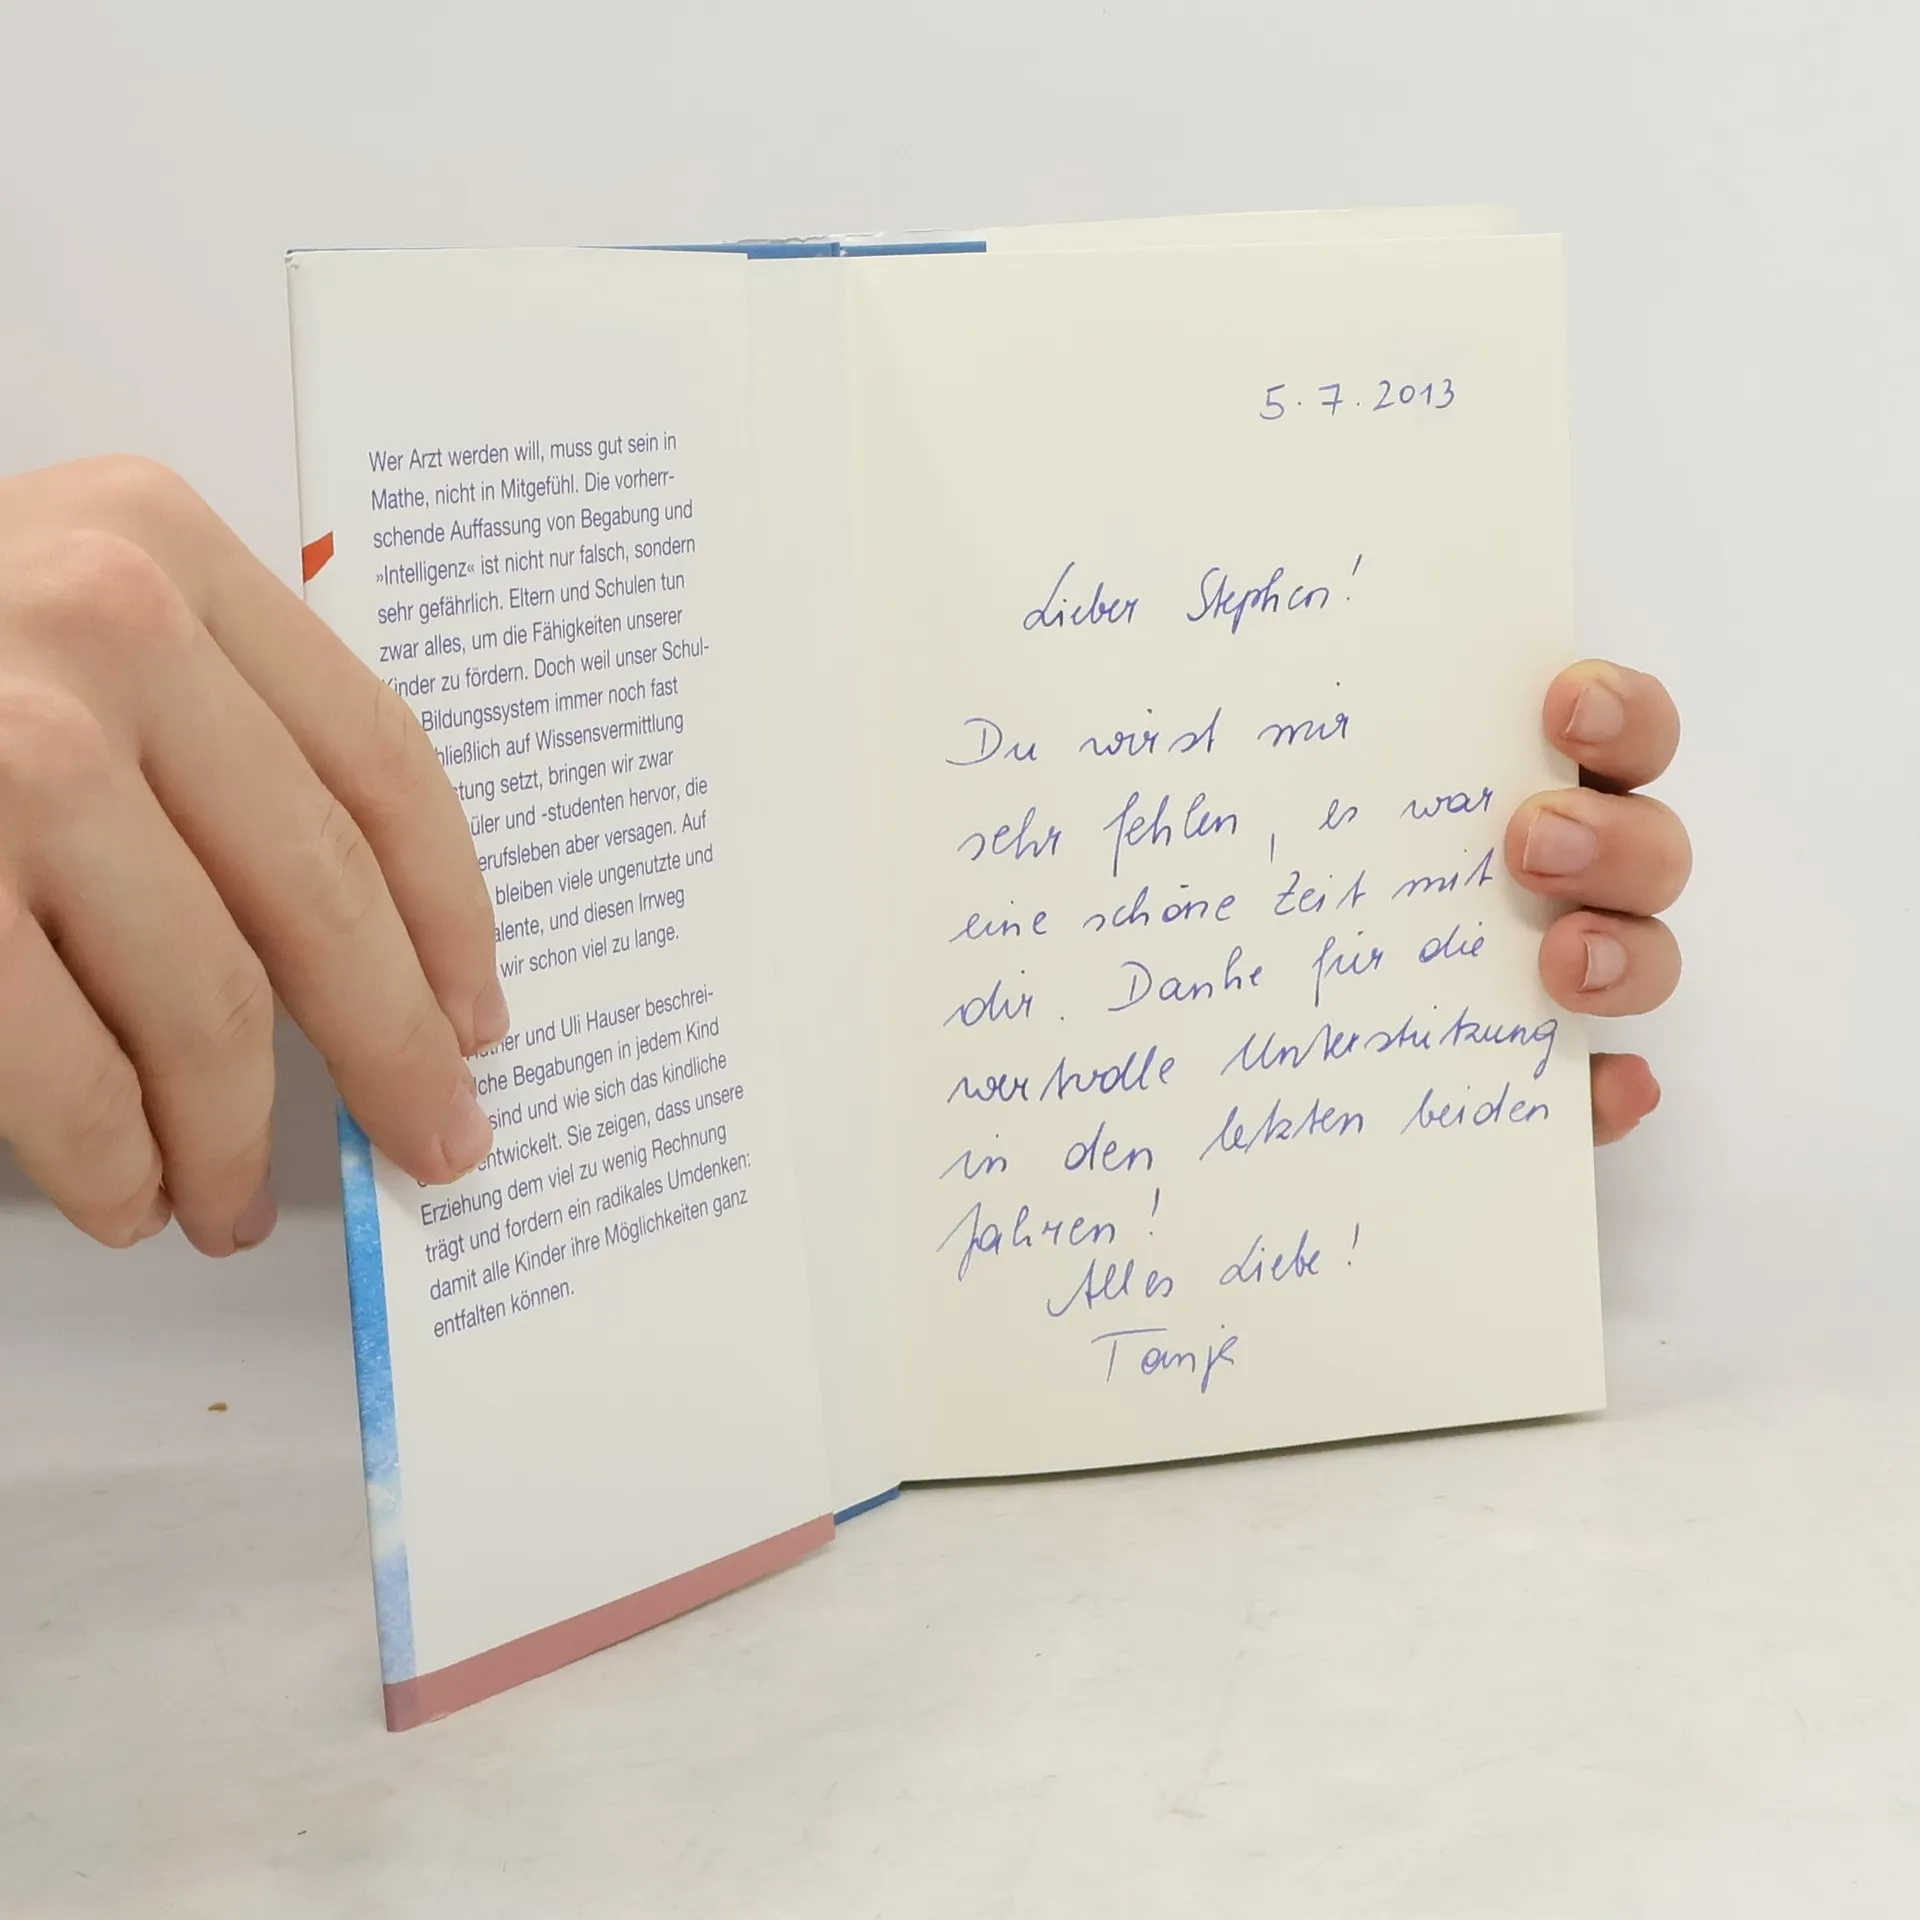 Wer Arzt werden will, muss gut sein in
Mathe, nicht in Mitgefühl. Die vorherr-
schende Auffassung von Begabung und
»Intelligenz« ist nicht nur falsch, sondern
sehr gefährlich. Eltern und Schulen tun
zwar alles, um die Fähigkeiten unserer
Kinder zu fördern. Doch weil unser Schul-
Bildungssystem immer noch fast
hließlich auf Wissensvermittlung
tung setzt, bringen wir zwar
üler und -studenten hervor, die
erufsleben aber versagen. Auf
bleiben viele ungenutzte und
alente, und diesen Irrweg
wir schon viel zu lange.
her und Uli Hauser beschrei-
lche Begabungen in jedem Kind
sind und wie sich das kindliche
entwickelt. Sie zeigen, dass unsere
Erziehung dem viel zu wenig Rechnung
trägt und fordern ein radikales Umdenken:
damit alle Kinder ihre Möglichkeiten ganz
entfalten können.
5.7.2013
Lieber Stephan!
Du wirst mir
sehr fehlen, es war
eine schöne Zeit mit
dir. Danke für die
wertvolle Unterstützung
in den letzten beiden
Jahren!
Alles Liebe!
Tanja